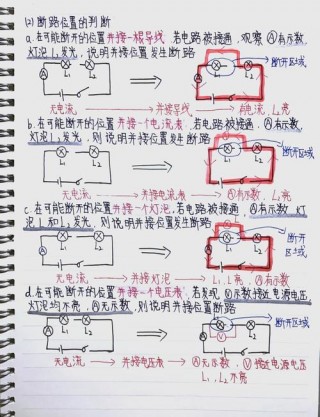 (2) 断路位置的判断
a.在可能断开的位置并接一根导线,若电路被接通,观察Ⓐ有示数,
灯泡L₁发光,说明并接位置发生断路
L₁ L₂ L₁ L₂ 断开区域
无电流 → 并接导线 → 有电流,L₁亮
b.在可能断开的位置并接一个电流表,若电路被接通,Ⓐ有示数,
灯泡L₂发光,则说明并接位置发生断路
L₁ L₂ L₁ L₂ 断开区域
无电流 → 并接电流表 → Ⓐ有示数,L₂亮
c.在可能断开的位置并接一个灯泡,若电路被接通,Ⓐ有示数,灯
泡L₁和L₂发光,则说明并接位置发生断路
A L₁ L₂ A L₁ L₂ 断开区域
无电流 → 并接灯泡 → L₁,L亮,Ⓐ有示数
d.在可能断开的位置并接一个电压表,若发现Ⓥ示数接近电源电压
灯泡均不亮,Ⓐ无示数,则说明并接位置断路
A L₁ L₂ A L₁ L₂ V 断开区域
无电流 → 并接电压表 → Ⓐ无示数,Ⓥ接近电源电压
L₁,L₂不亮